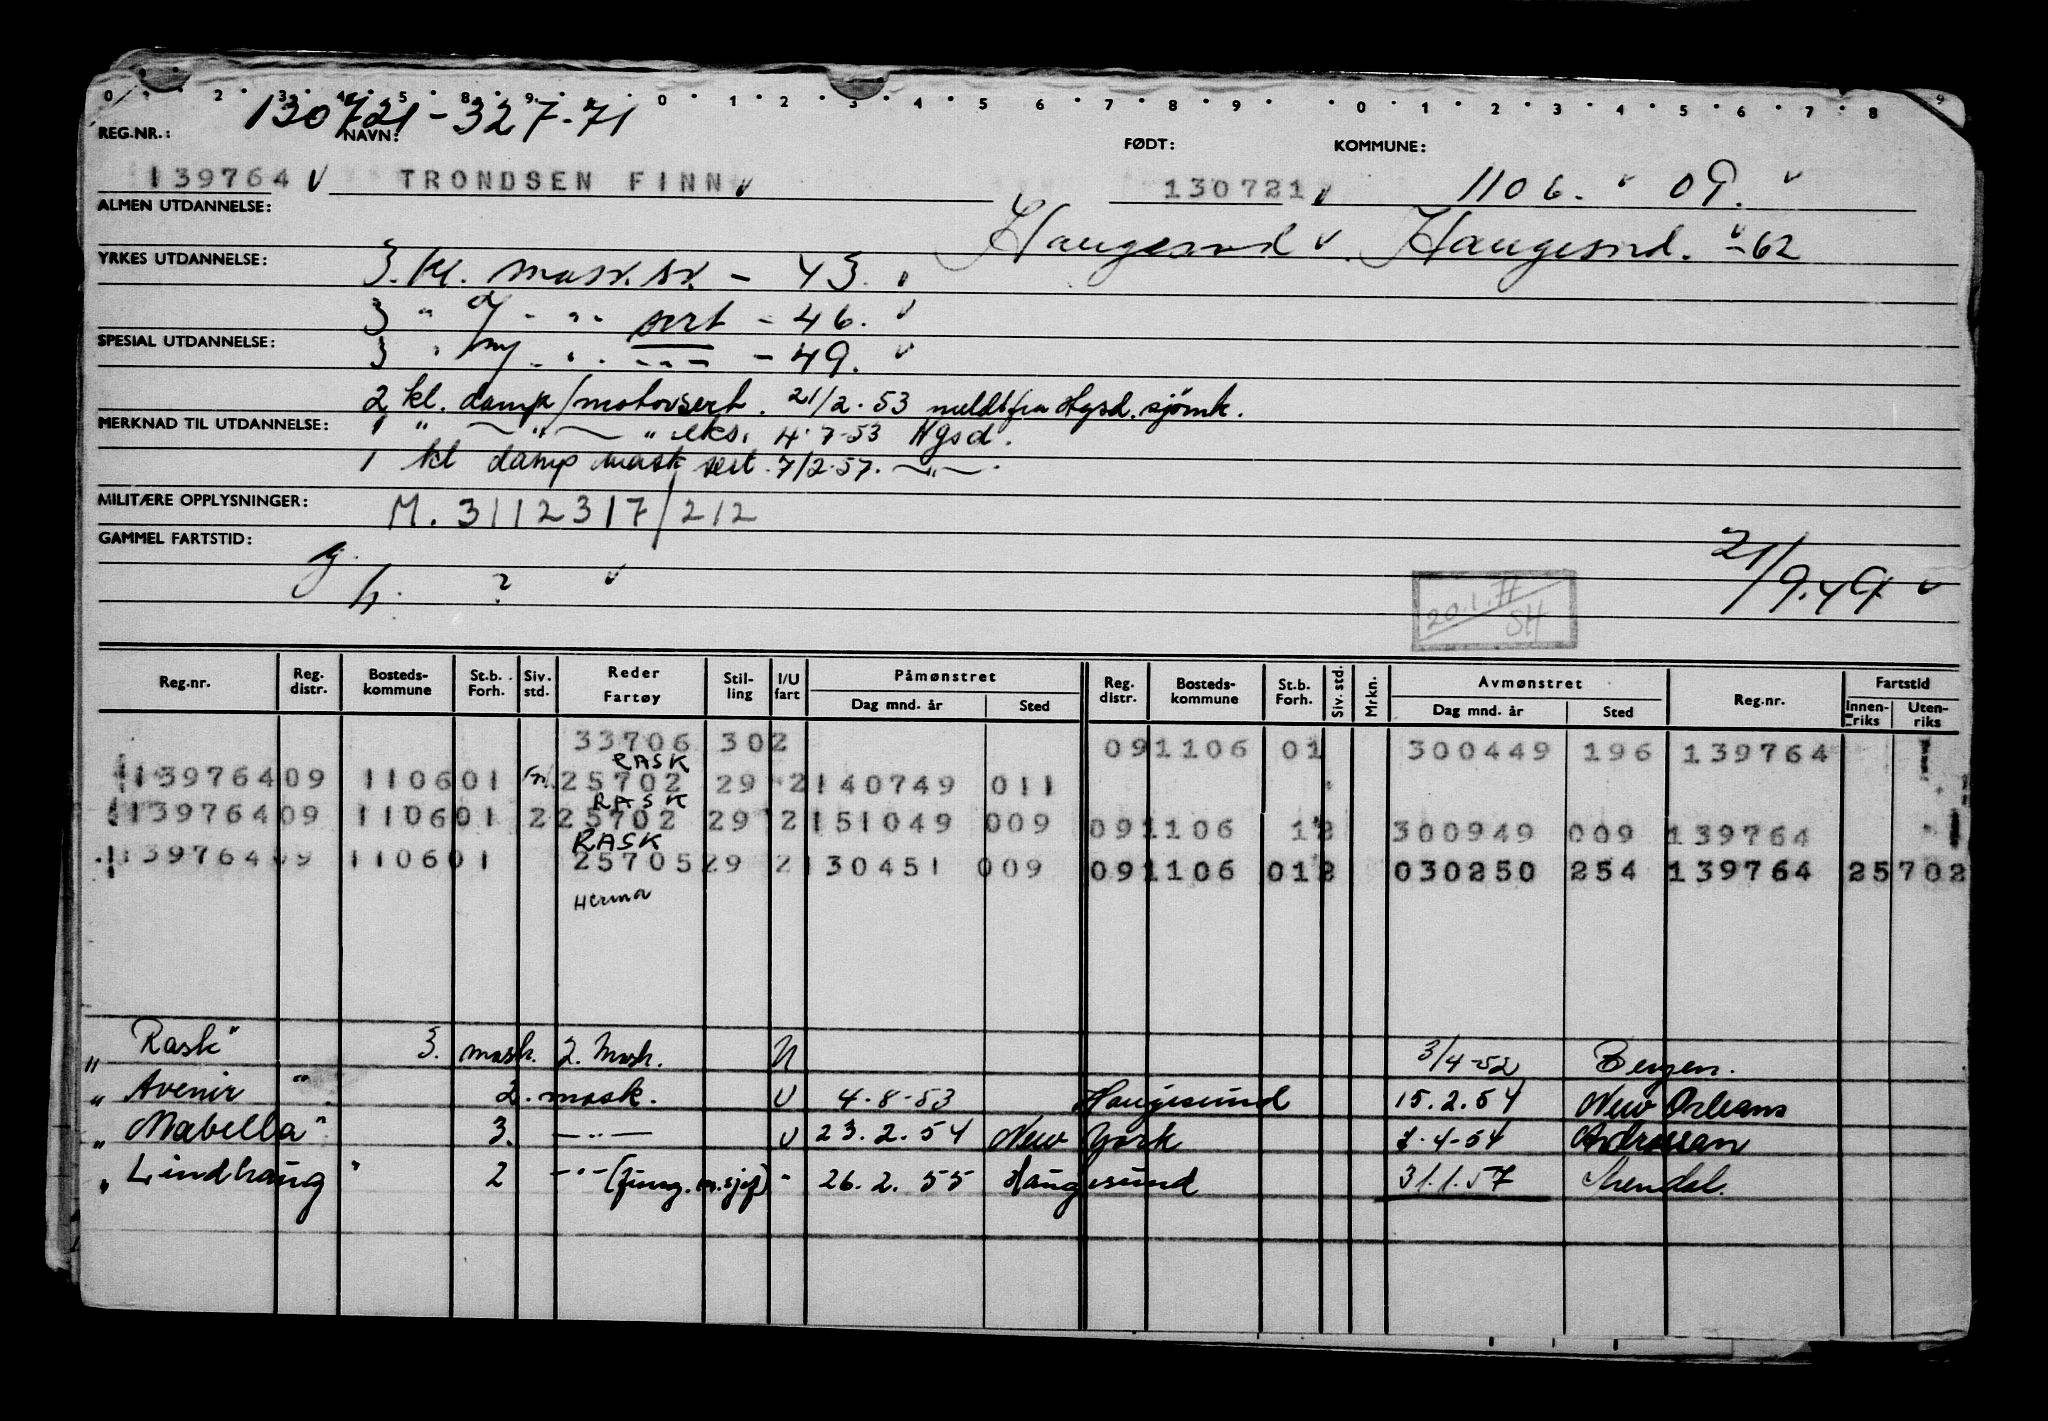 130721-327-71
REG.NR.: NAVN: FØDT: KOMMUNE:
139764 v TRONDSEN FINN v 130721 v 1106. 09. v
ALMEN UTDANNELSE:
Haugesund v. Haugesund. -62
YRKES UTDANNELSE: 3. kl. mask.sk. - 43. v
3 " - " - sert - 46. v
SPESIAL UTDANNELSE: 3 " " - " - - " - - 49. v
2 kl. damp/motorsert. 21/2-53 meldt fra Hgsd. sjömk.
MERKNAD TIL UTDANNELSE: 1 " — " — " eks. 4-7-53 Hgsd.
1 kl damp mask sert. 7/2-57. — " —.
MILITÆRE OPPLYSNINGER: M. 3112317/212
GAMMEL FARTSTID:
h. ? v 21/9.49 v
20.1.71
SH
Reg.nr. Reg. distr. Bosteds-kommune St.b. Forh. Siv. std. Reder Fartøy Stil-ling I/U fart Påmønstret Dag mnd. år Sted Reg. distr. Bosteds-kommune St.b. Forh. Siv. std. Mrkn. Avmønstret Dag mnd. år Sted Reg.nr. Fartstid Innen-riks Uten-riks
33706 302 091106 01 300449 196 139764
RASK
139764 09 1106 01 25702 29 2 140749 011
RASK
139764 09 1106 01 2 25702 29 2 151049 009 091106 12 300949 009 139764
RASK
139764 09 1106 01 25705 29 2 130451 009 091106 012 030250 254 139764 25702
Herma
"Rask" 3. mask. 2. mask. U 3/4-52 Bergen.
"Avenir" 2. mask. U 4-8-53 Haugesund 15.2.54 New Orleans
"Mabella" 3. — " — U 23.2.54 New York 7-4-54 Ardrossan
"Lindhaug" 2 - " - (fung. m.sjef) " 26.2.55 Haugesund 31.1.57